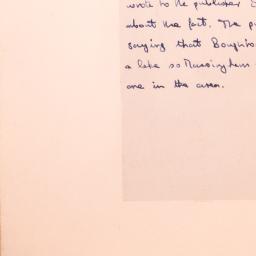 wrote to the publisher
about the fact. The
saying that
a lake so Massingham
one in the area.